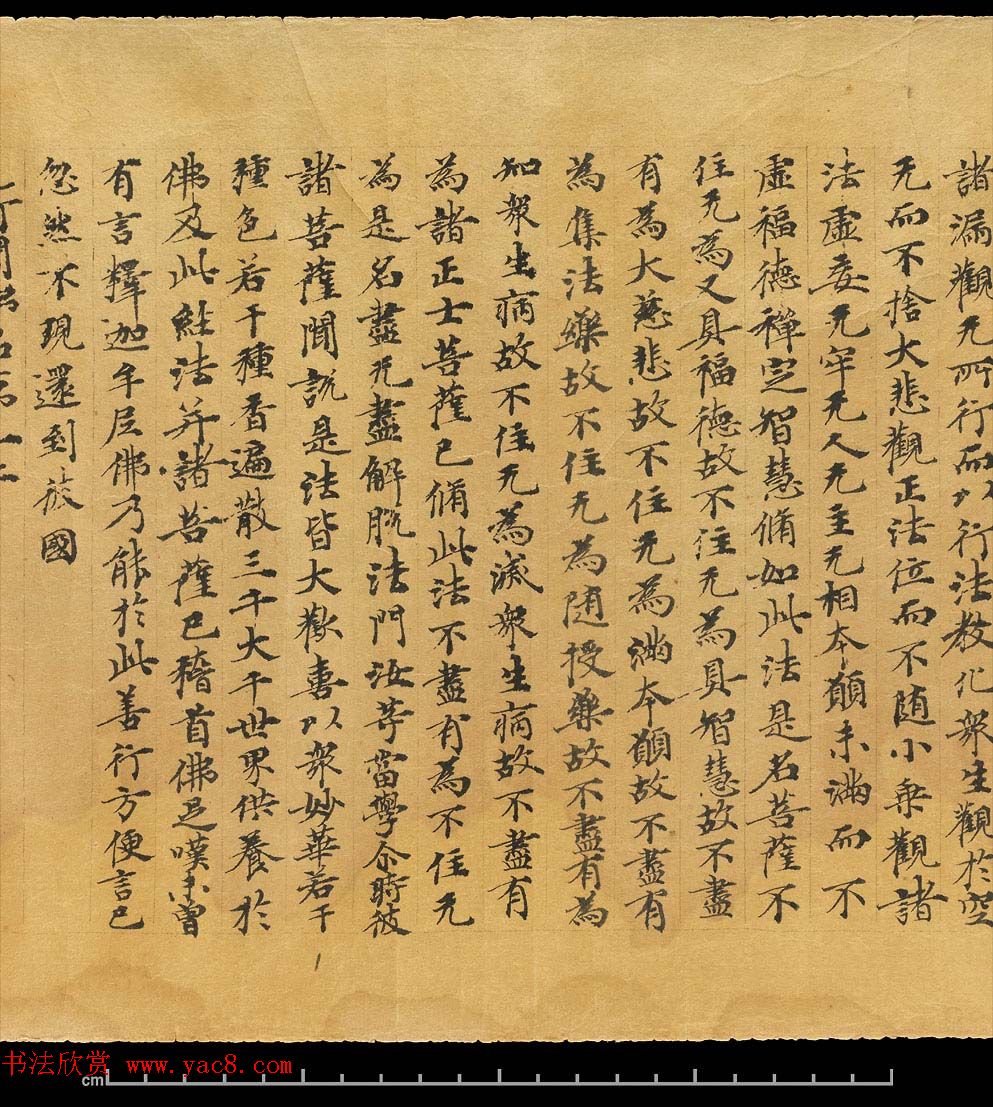 諸漏觀无所行而以行法教化衆生觀於空
无而不捨大悲觀正法位而不随小乗觀諸
法虛妄无牢无人无主无相本願未滿而不
虛福德禪定智慧脩如此法是名菩薩不
住无為又具福德故不住无為具智慧故不盡
有為大慈悲故不住无為滿本願故不盡有
為集法藥故不住无為随授藥故不盡有為
知衆生病故不住无為滅衆生病故不盡有
為諸正士菩薩已脩此法不盡有為不住无
為是名盡无盡解脫法門汝等當學尒時彼
諸菩薩聞說是法皆大歡喜以衆妙華若干
種色若干種香遍散三千大千世界供養於
佛及此經法并諸菩薩已稽首佛足嘆未曾
有言釋迦牟尼佛乃能於此善行方便言已
忽然不現還到彼國
书法欣赏 www.yac8.com
cm